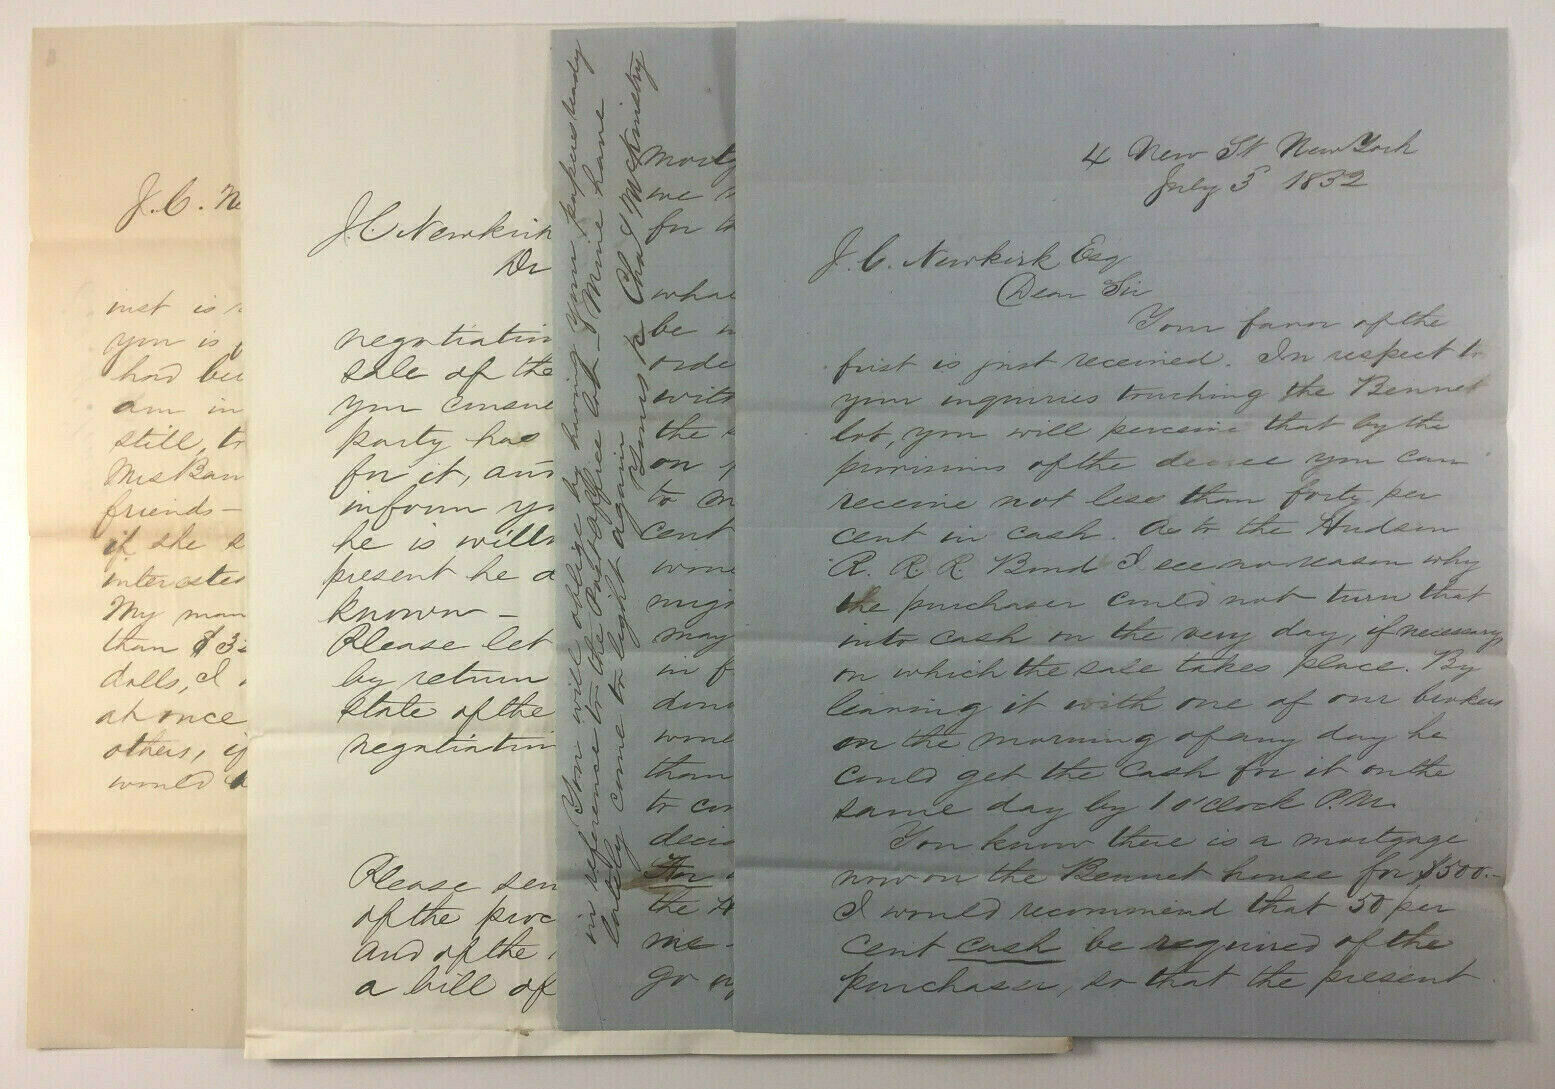 J. C. Ne
inst is
you is
had be
am in
still, to
Mrs Ban
friends -
if she s
interested
My man
than $ 3
dolls, I
at once
others, if
would
J C Newkirk
De
negotiation
sale of the
you consu
party has
for it, and
inform yo
he is willi
present he a
known -
Please let
by return
state of the
negotiation
Please sen
of the proc
and of the
a bill of
You will oblige by having your papers ready
in reference to the Postoffice as Mine have
lately come to light again
Yours &c Chas McKinstry
mortg
me
for th
what
be in
orde
with
the s
on
to m
cent
woul
migh
may
in f
done
woul
than
to co
decis
For
the H
me -
go
4 New St New York
July 5 1832
J. C. Newkirk Esq
Dear Sir
Your favor of the
first is just received. In respect to
your inquiries touching the Bennet
lot, you will perceive that by the
provisions of the decree you can
receive not less than forty per
cent in cash. As to the Hudson
R. R R Bond I see no reason why
the purchaser could not turn that
into cash on the very day, if necessary,
on which the sale takes place. By
leaving it with one of our brokers
on the morning of any day he
could get the cash for it on the
same day by 1 o'clock P.M.
You know there is a mortgage
now on the Bennet house for $500.-
I would recommend that 50 per
cent cash be required of the
purchaser, so that the present